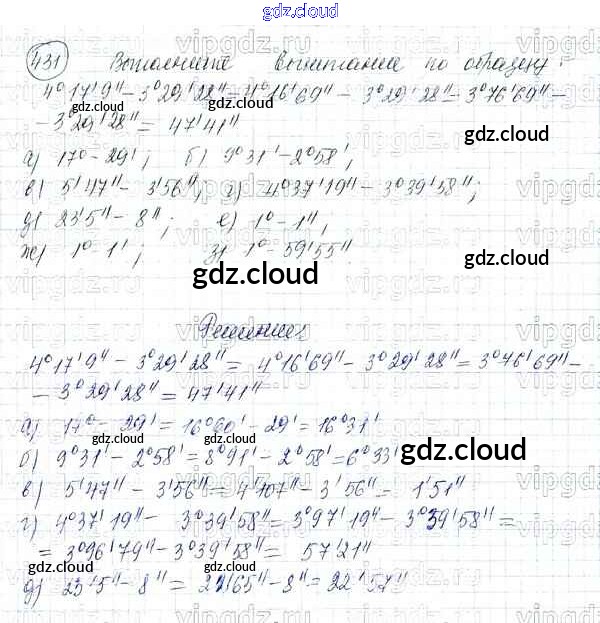 gdz.cloud
431 Выполните вычитание по образцу:
4°17'9'' - 3°29'28'' = 4°16'69'' - 3°29'28'' = 3°76'69'' -
- 3°29'28'' = 47'41''
а) 17° - 29'; б) 9°31' - 2°58';
в) 5'47'' - 3'56''; г) 4°37'19'' - 3°39'58'';
д) 23'5'' - 8''; е) 1° - 1'';
ж) 1° - 1'; з) 1° - 59'55''.
gdz.cloud
Решение:
4°17'9'' - 3°29'28'' = 4°16'69'' - 3°29'28'' = 3°76'69'' -
- 3°29'28'' = 47'41''
а) 17° - 29' = 16°60' - 29' = 16°31'
б) 9°31' - 2°58' = 8°91' - 2°58' = 6°33'
в) 5'47'' - 3'56'' = 4'107'' - 3'56'' = 1'51''
г) 4°37'19'' - 3°39'58'' = 3°97'19'' - 3°39'58'' =
= 3°96'79'' - 3°39'58'' = 57'21''
д) 23'5'' - 8'' = 22'65'' - 8'' = 22'57''